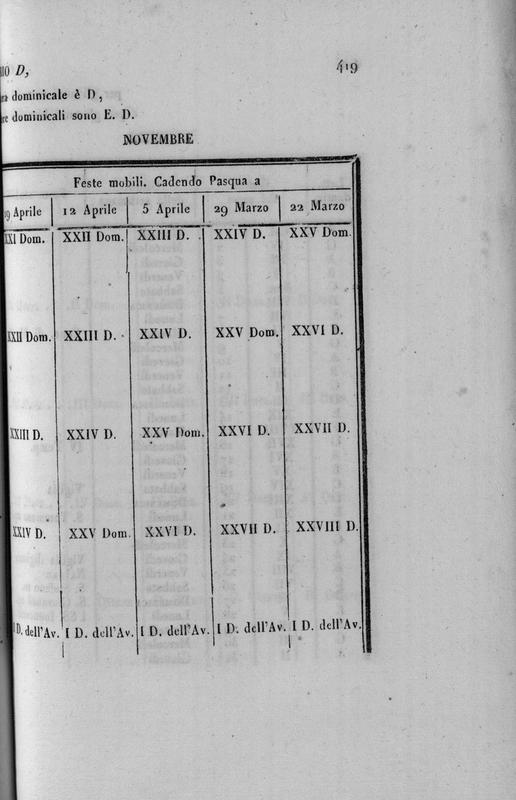 D, 419
dominicale è D,
dominicali sono E. D.
NOVEMBRE
Feste mobili. Cadendo Pasqua a
19 Aprile 12 Aprile 5 Aprile 29 Marzo 22 Marzo
XXI Dom. XXII Dom. XXIII D. XXIV D. XXV Dom.
XXII Dom. XXIII D. XXIV D. XXV Dom. XXVI D.
XXIII D. XXIV D. XXV Dom. XXVI D. XXVII D.
XXIV D. XXV Dom. XXVI D. XXVII D. XXVIII D.
I D. dell'Av. I D. dell'Av. I D. dell'Av. I D. dell'Av. I D. dell'Av.